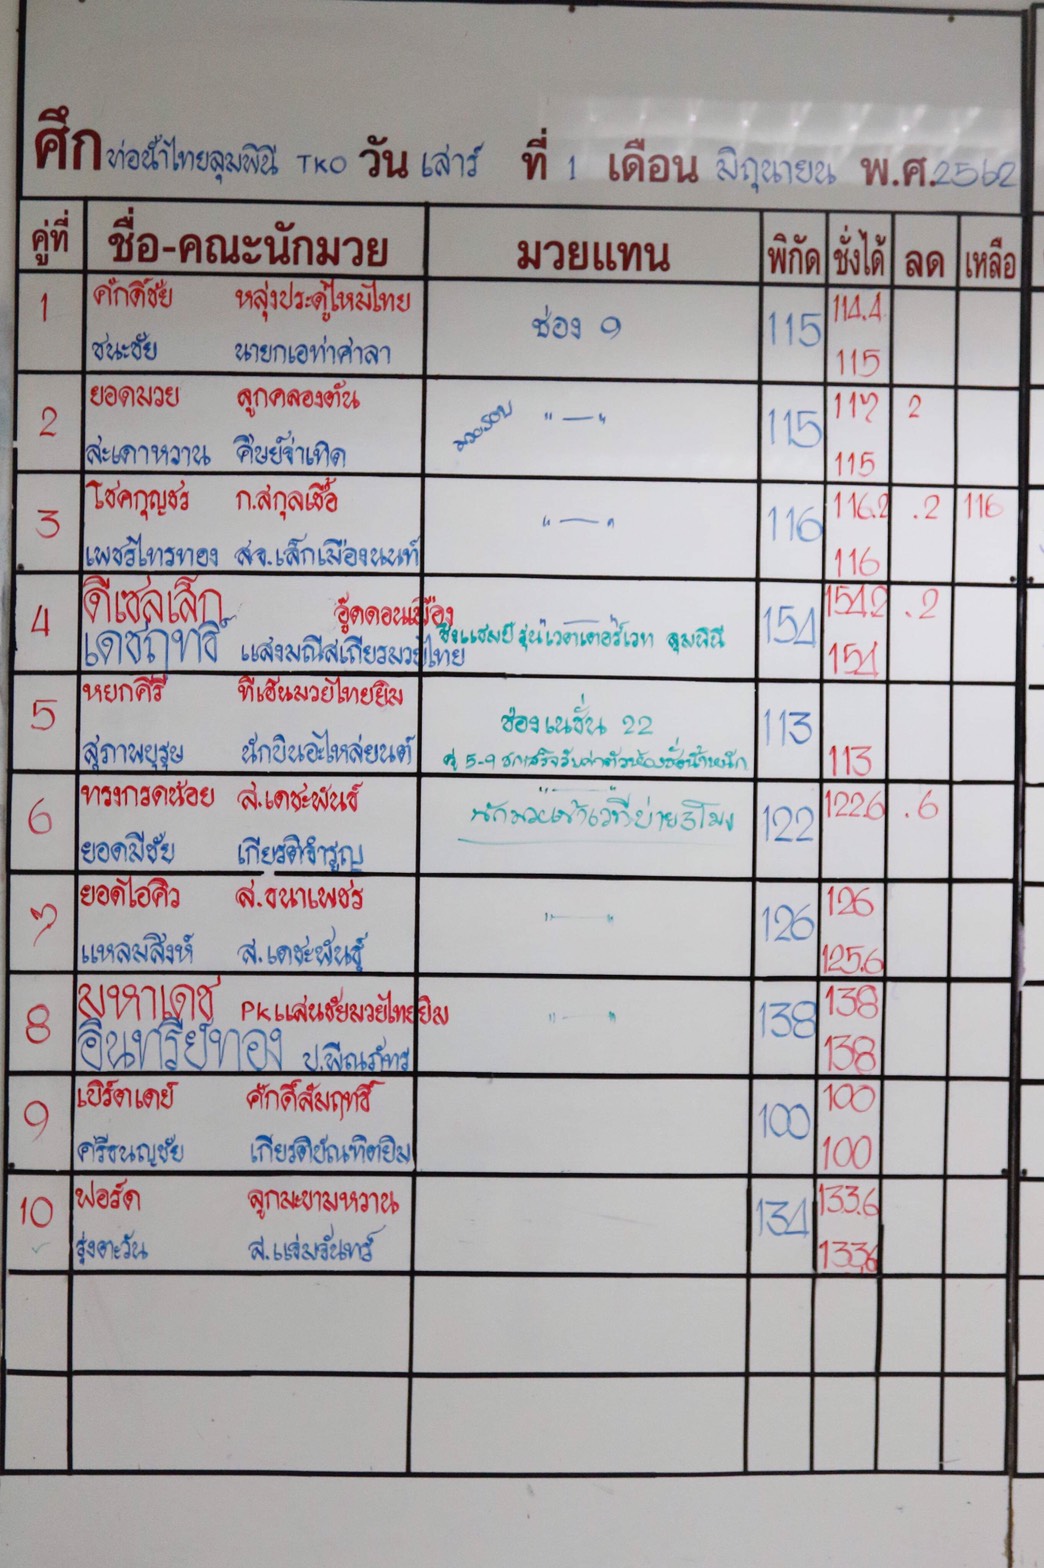 ศึก ท่อน้ำไทยลุมพินี TKO วัน เสาร์ ที่ 1 เดือน มิถุนายน พ.ศ. 2562
คู่ที่ ชื่อ-คณะนักมวย มวยแทน พิกัด ชั่งได้ ลด เหลือ
1 ศักดิ์ชัย หลุ่งประดู่ไหมไทย ช่อง 9 115 114.4
ชนะชัย นายกเอท่าศาลา 115
2 ยอดมวย ลูกคลองตัน มวยรอบ "—" 115 117 2
สะเดาหวาน ศิษย์จ่าเทิด 115
3 โชคกุญชร ก.สกุลเชื้อ "—" 116 116.2 .2 116
เพชรไทรทอง สจ.เล็กเมืองนนท์ 116
4 ดีเซลเล็ก อู๊ดดอนเมือง 154 154.2 .2
เดชฤทธิ์ แสงมณีสเถียรมวยไทย ชิงแชมป์ รุ่นเวลเตอร์เวท ลุมพินี 154
5 หยกศิริ ทีเฮ้นมวยไทยยิม ช่องเนชั่น 22 113
สุภาพบุรุษ นักบินอะไหล่ยนต์ คู่ 5-9 ชกเสร็จรับค่าตัวห้องชั่งน้ำหนัก 113
6 ทรงกรดน้อย ส.เดชะพันธ์ นักมวยเข้าเวทีบ่าย 3 โมง 122 122.6 .6
ยอดมีชัย เกียรติจำรูญ
7 ยอดไอคิว ส.ธนาเพชร "—" 126 126
แหลมสิงห์ ส.เดชะพันธุ์ 125.6
8 มหาเดช PKแสนชัยมวยไทยยิม "—" 138 138
อินทรีย์ทอง ป.พีณภัทร 138
9 เบิร์ดเดย์ ศักดิ์สัมฤทธิ์ 100 100
ศรีธนญชัย เกียรติบัณฑิตยิม 100
10 ฟอร์ด ลูกมะขามหวาน 134 133.6
รุ่งตะวัน ส.แสมจันทร์ 133.6